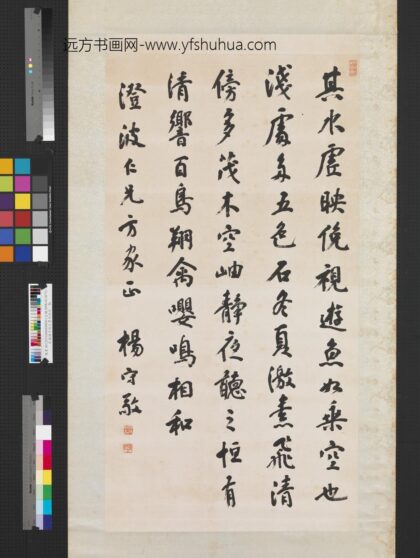 远方书画网-www.yfshuhua.com
其水虛映俛視遊魚如乗空也
淺處多五色石冬夏激素飛清
傍多茂木空岫靜夜聽之恒有
清響百鳥翔禽嚶鳴相和
澄波仁兄方家正 楊守敬